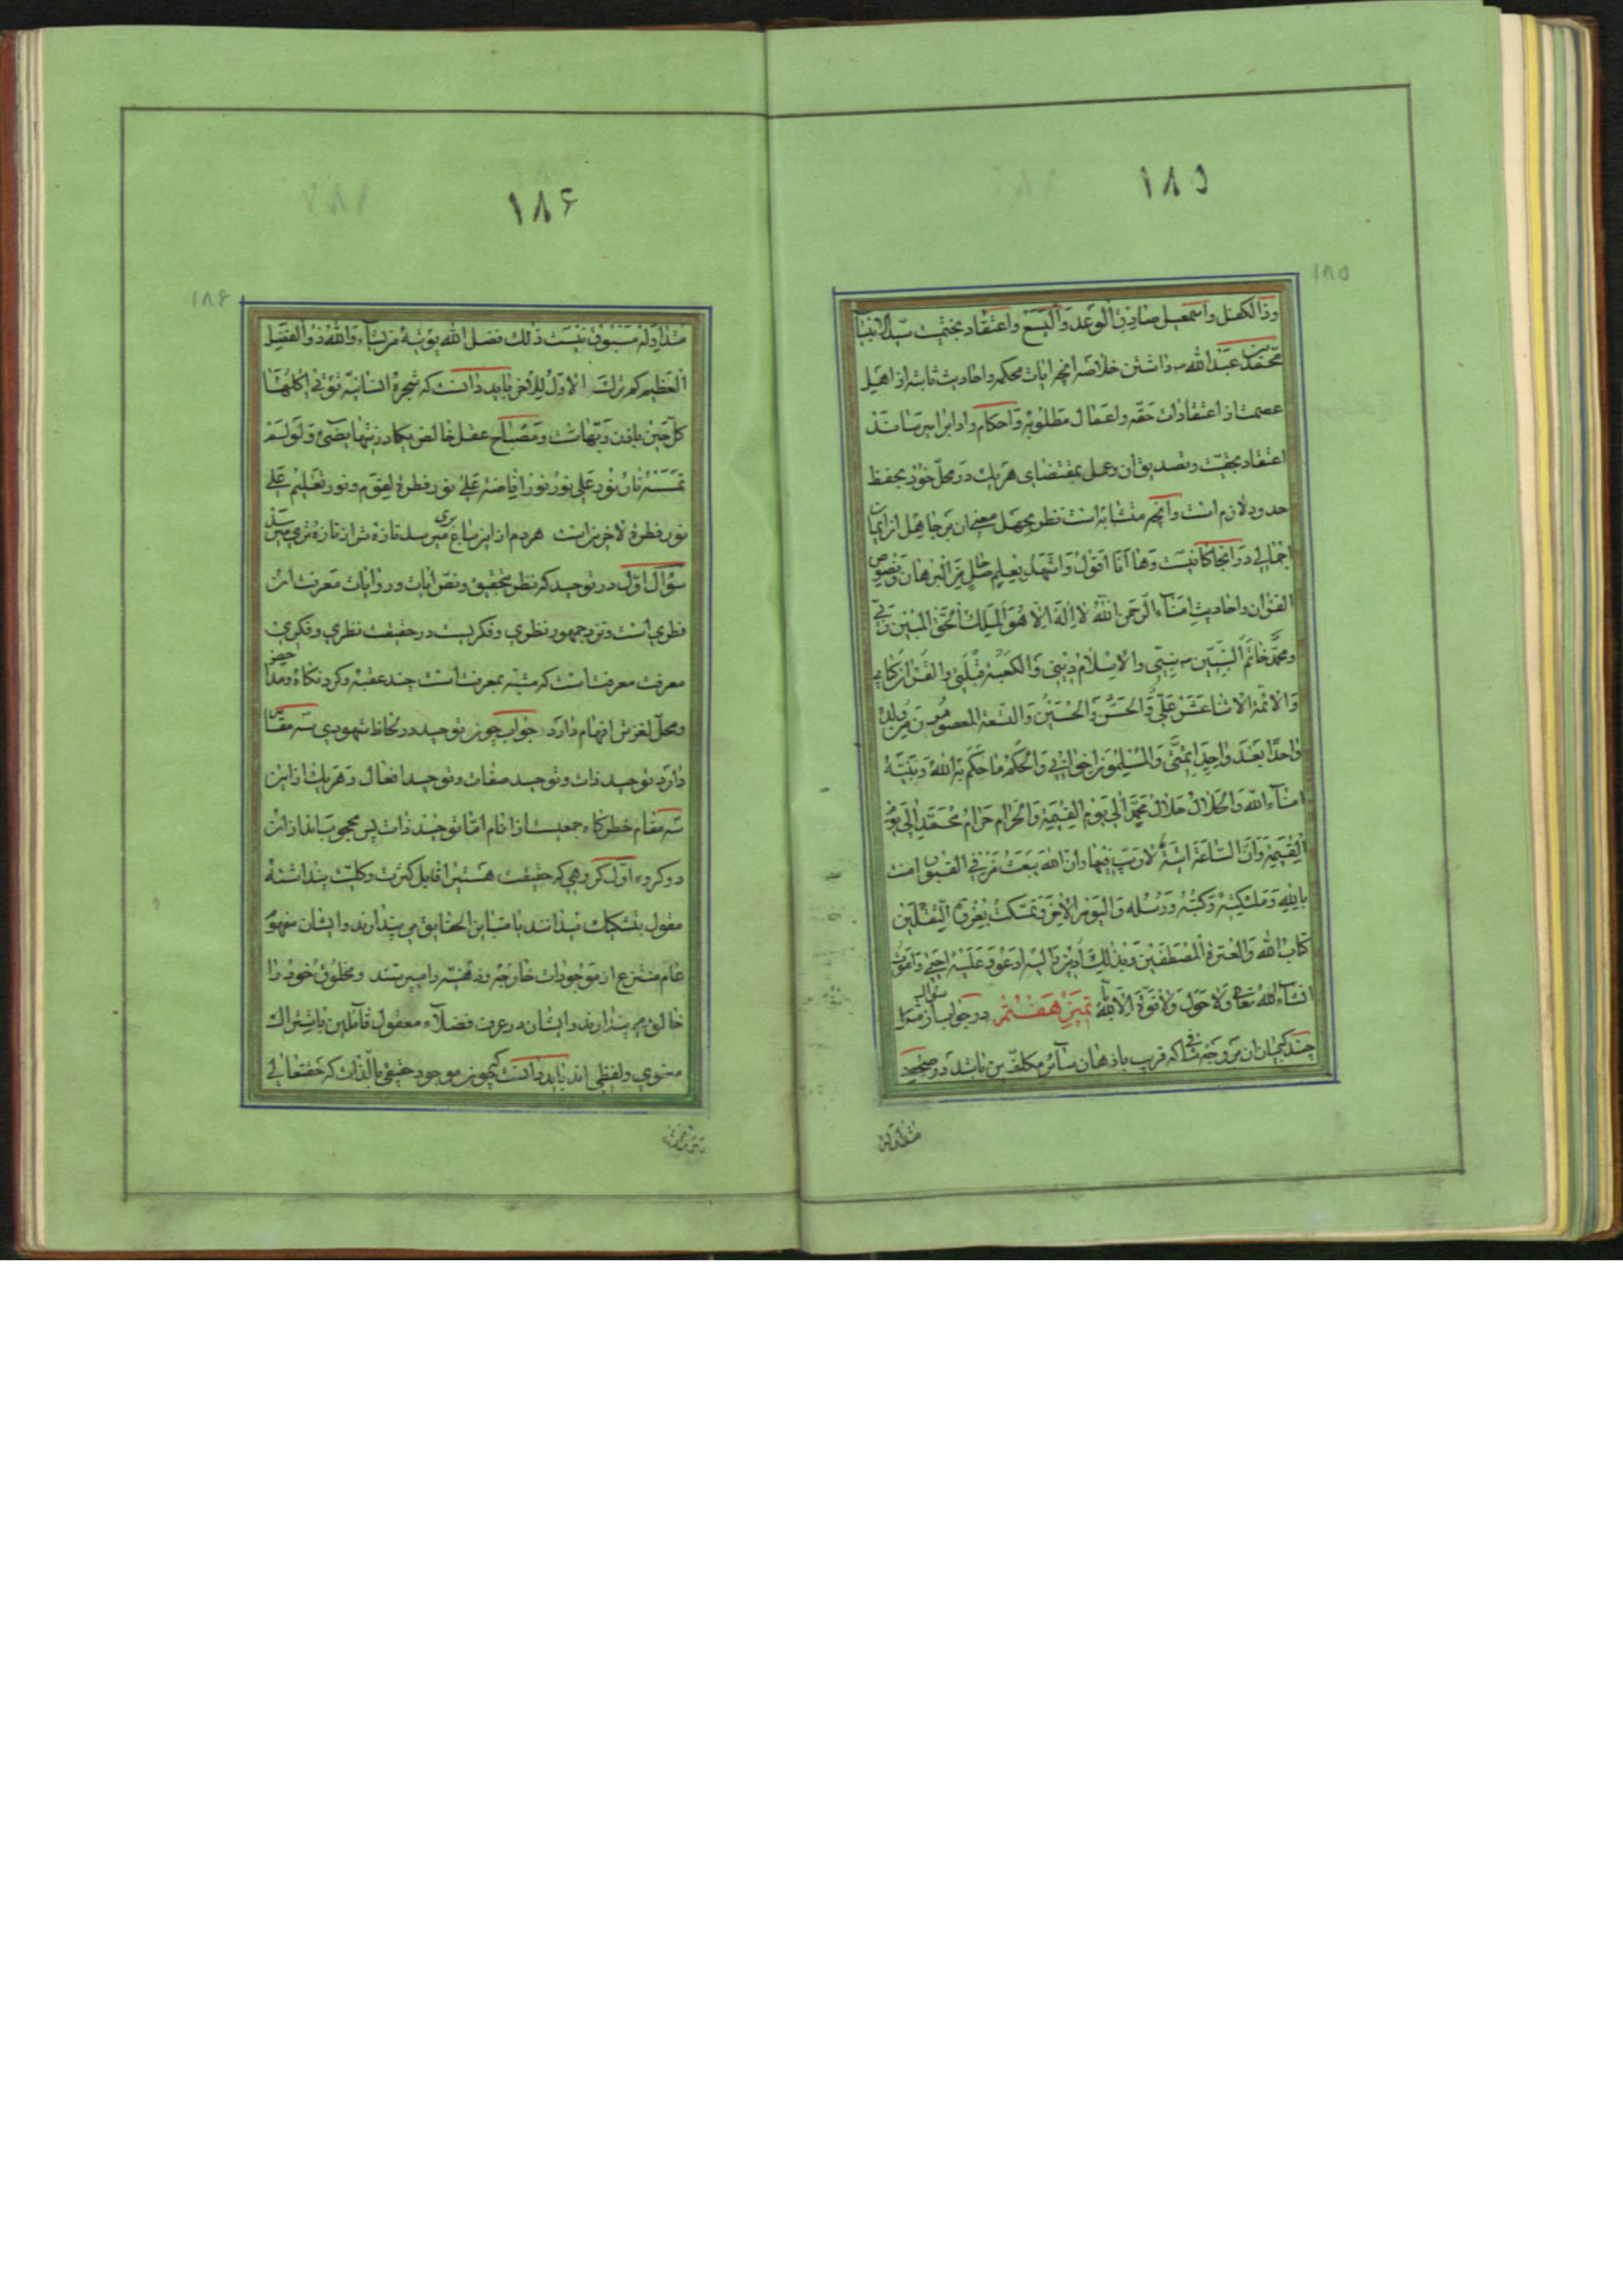 ۱۸۵
۱۸۵
وذالکفل واسمعیل صادق الوعد والیسع واعتقاد بختمیت سید الانبیا
محمد بن عبدالله ص داشتن خلاصه انچه ایات محکمه واحادیث ثابته از اهل
عصمت از اعتقادات حقه واعمال مطلوبه واحکام واداب
اعتقاد بحقیت وتصدیق ان وعمل بمقتضای هر یک در محل خود بحفظ
حدود لازم است وانچه متشابه است نظر بجهل معنی ان بر جاهل از ایمان
اجمالی در انجا نیست وها انا اقول واشهد بتعلیم من البرهان ونصوص
القران واحادیث امناء الرحمن الله لا اله الا هو الملک الحق المبین ربی
ومحمد خاتم النبیین ص نبیی والاسلام دینی والکعبة قبلتی والقران کتابی
والائمة الاثناعشر علی والحسن والحسین والتسعة المعصومون من ولده
واحدا بعد واحد ائمتی والمسلمون اخوانی والحکم ما حکم به الله وبینه
امناء الله والحلال حلال محمد الی یوم القیمة والحرام حرام محمد الی یوم
القیمة وان الساعة اتیة لا ریب فیها وان الله یبعث من فی القبور امنت
بالله وملئکته وکتبه ورسله والیوم الاخر وتمسکت بعروة الثقلین
کتاب الله والعترة المصطفین وبذلک ادین یا لیه ادعو وعلیه احیی واموت
انشاء الله تعالی ولا حول ولا قوة الا بالله تمیز هفتم در جواب از سؤالی
چند که بیان ان بر وجه شافی که قریب باذهان سائر مکلفین باشد در صحیحه
متداوله
۱۸۶
۱۸۶
متداوله مسبوق نیست ذلک فضل الله یؤتیه من یشاء والله ذو الفضل
العظیم کم ترک الاول للاخر باید دانست که شجرهٔ انسانیه تؤتی اکلها
کل حین باذن ربهاست ومصباح عقل خالص یکاد زیتها یضیء ولو لم
تمسسه نار نور علی نور نور افاضه علی نور فطرة لقوم ونور تعلیم علی
نور فطرة لاخرین است هردم از این باغ بری میرسد تازه تر از تازه تری میرسد
سؤال اول در توحید که نظر بتحقیق ونص ایات وروایات معرفت ان
فطری است ونزد جمهور نظری وفکریست در حقیقت نظری وفکری
معرفت معرفت است که متنبه بمعرفت است چند عقبه وکرد نکاه ومداحض
ومحل لغزش افهام دارد جواب چون توحید در لحاظ شهودی سه مقام
دارد توحید ذات وتوحید صفات وتوحید افعال وهر یک از این
سه مقام خطرکاه جمعیست از انام اما توحید ذات پس محجوب اند از ان
دو کروه اول کروهی که حقیقت هستی را قابل کثرت وکلیت پنداشته
مقول بتشکیک میدانند یا متباین الحقایق می پندارند وایشان مفهوم
عام منتزع از موجودات خارجه وذهنیه را میپرستند ومخلوق خود را
خالق می پندارند وایشان در عرف فضلاء معقول قائلین باشتراک
معنوی ولفظی اند باید دانست که چون موجود حقیقی بالذات که حقتعالی